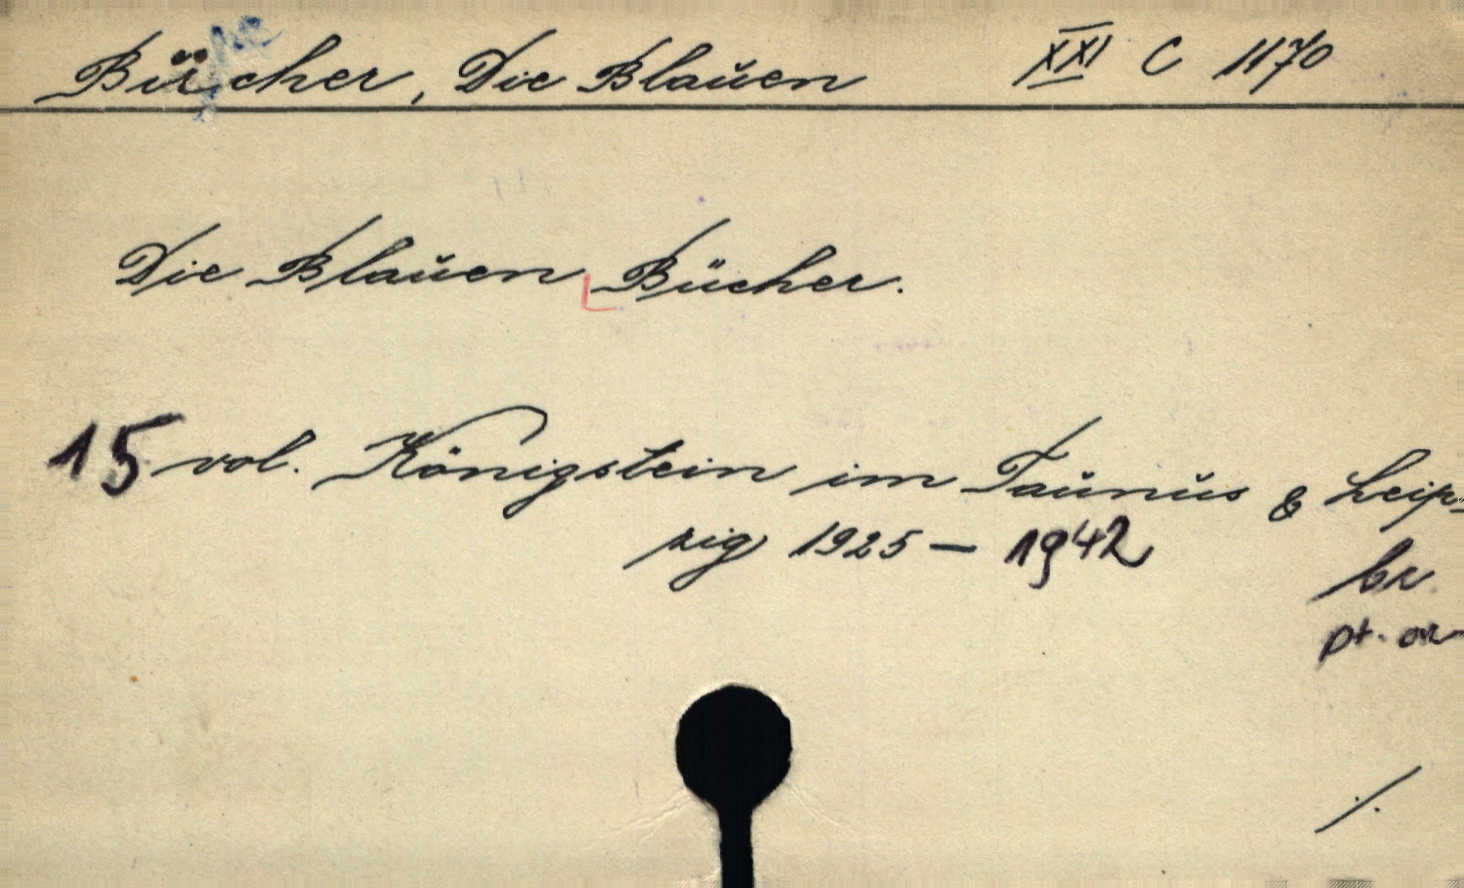 Bücher, Die Blauen XXI C 1170
Die Blauen Bücher.
15 vol. Königstein im Taunus & Leip-
zig 1925 – 1942
br.
pt. or
./.